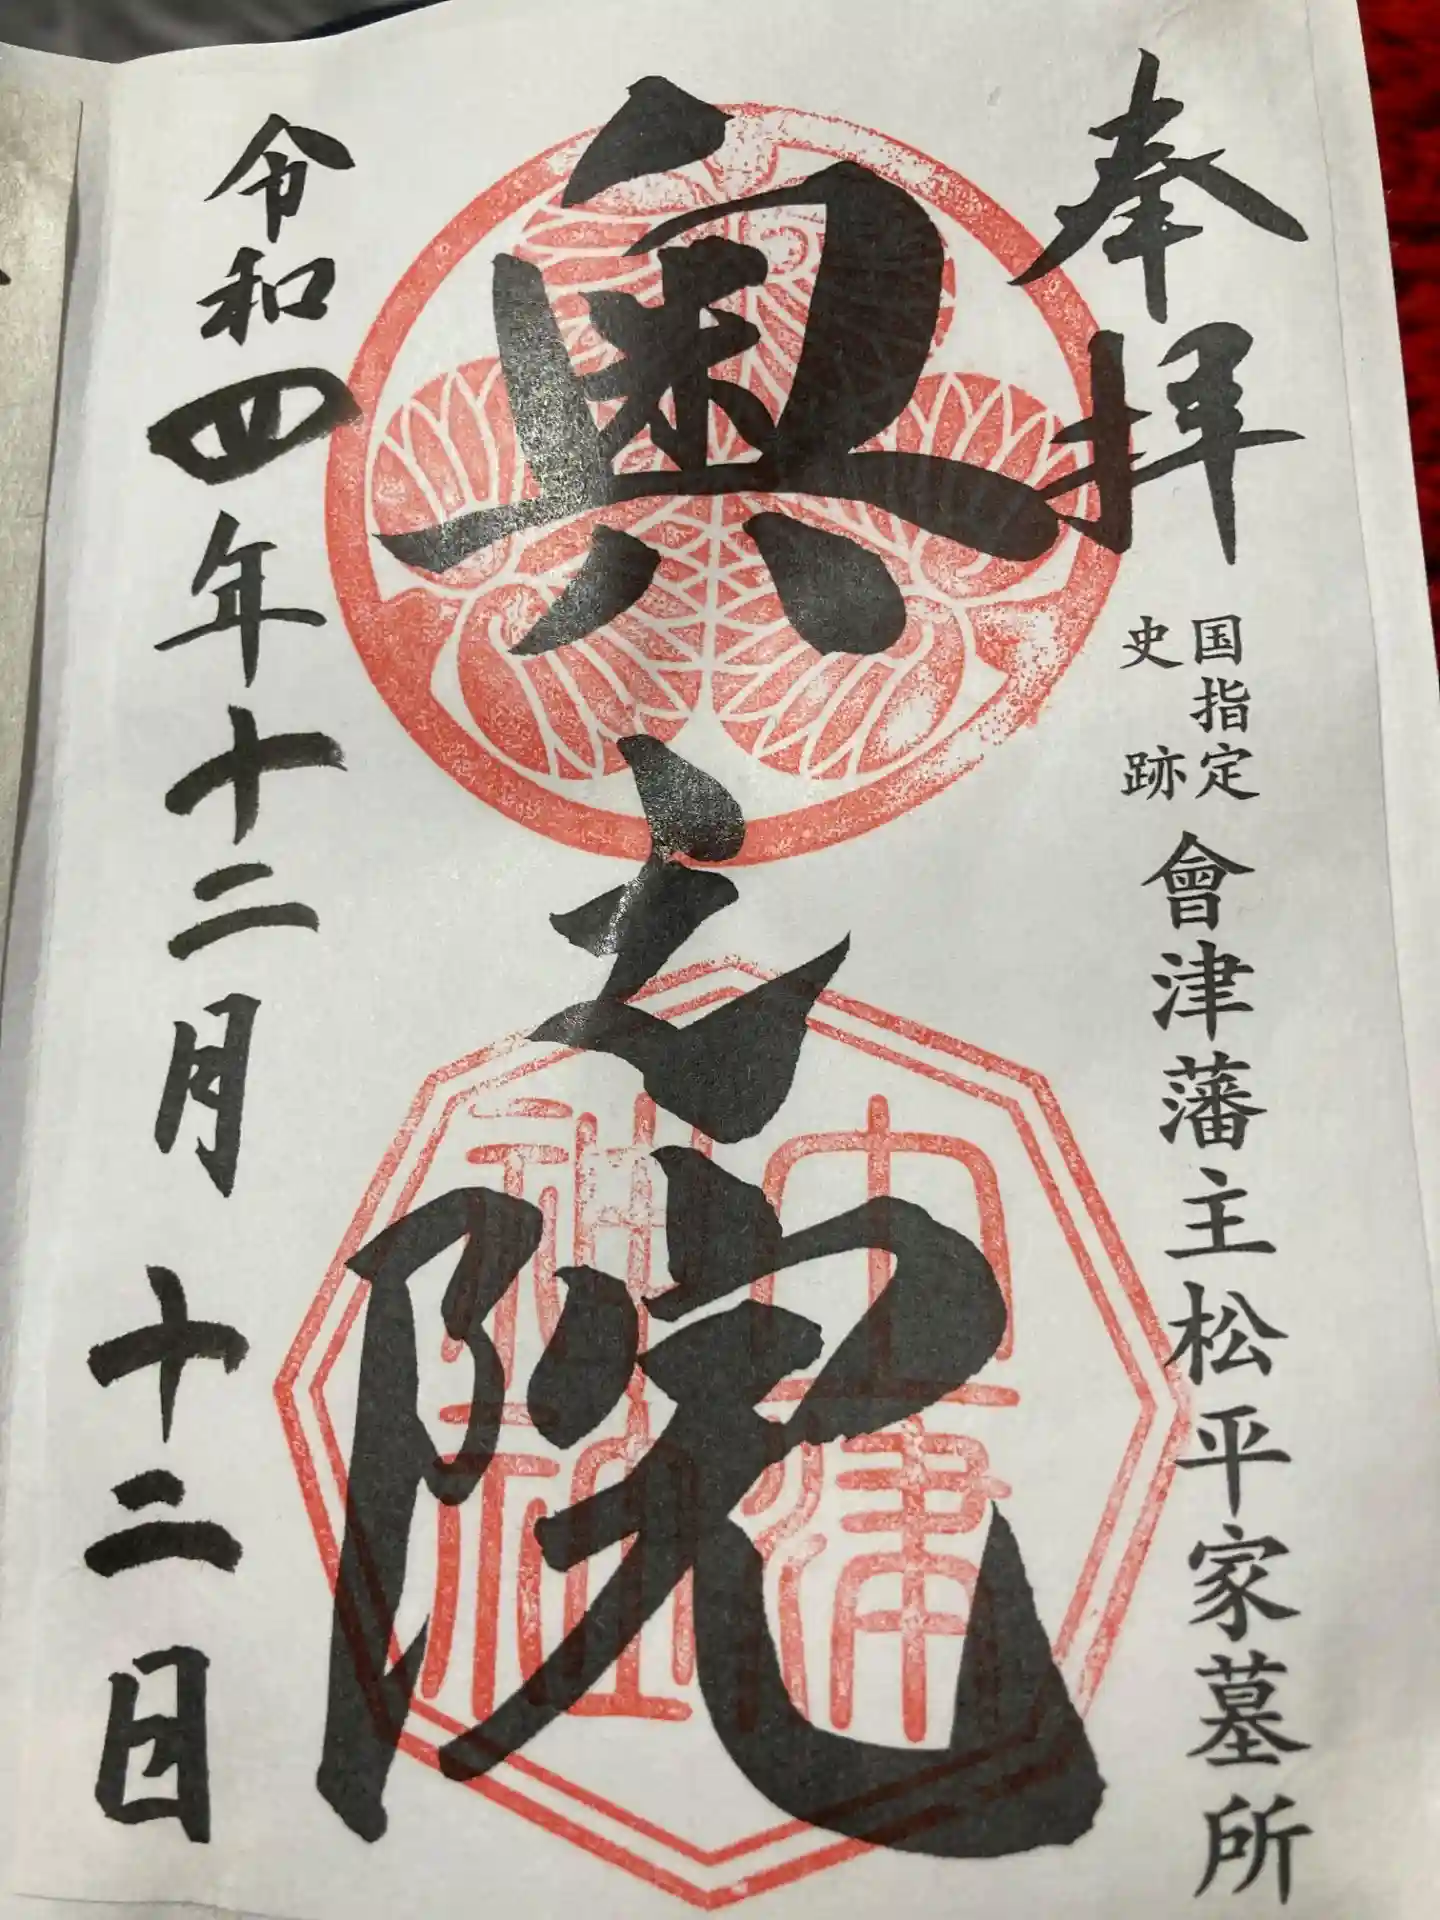 奉拝
国指定
史跡
會津藩主松平家墓所
奥之院
津
神社
令和四年十二月十二日